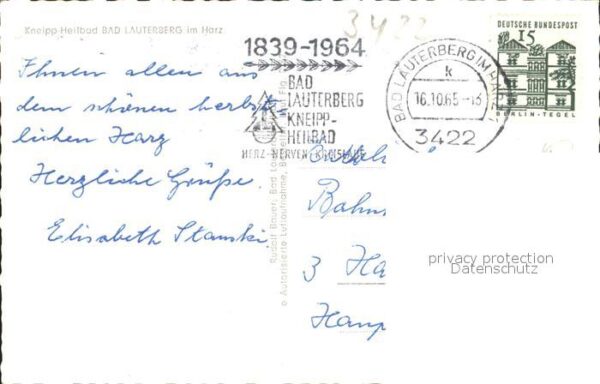 Kneipp-Heilbad BAD LAUTERBERG im Harz
Ihnen allen aus
dem schönen herbst-
lichen Harz
Herzliche Grüße
Elisabeth
3422
1839-1964
BAD
LAUTERBERG
KNEIPP-
HEILBAD
HERZ-NERVEN-KREISLAUF
BAD LAUTERBERG IM HARZ
k
16.10.65-13
3422
DEUTSCHE BUNDESPOST
15
BERLIN-TEGEL
Rudolf Bauer, Bad
Autorisierte Luftaufnahme,
Bahn
3 Ha
privacy protection
Datenschutz